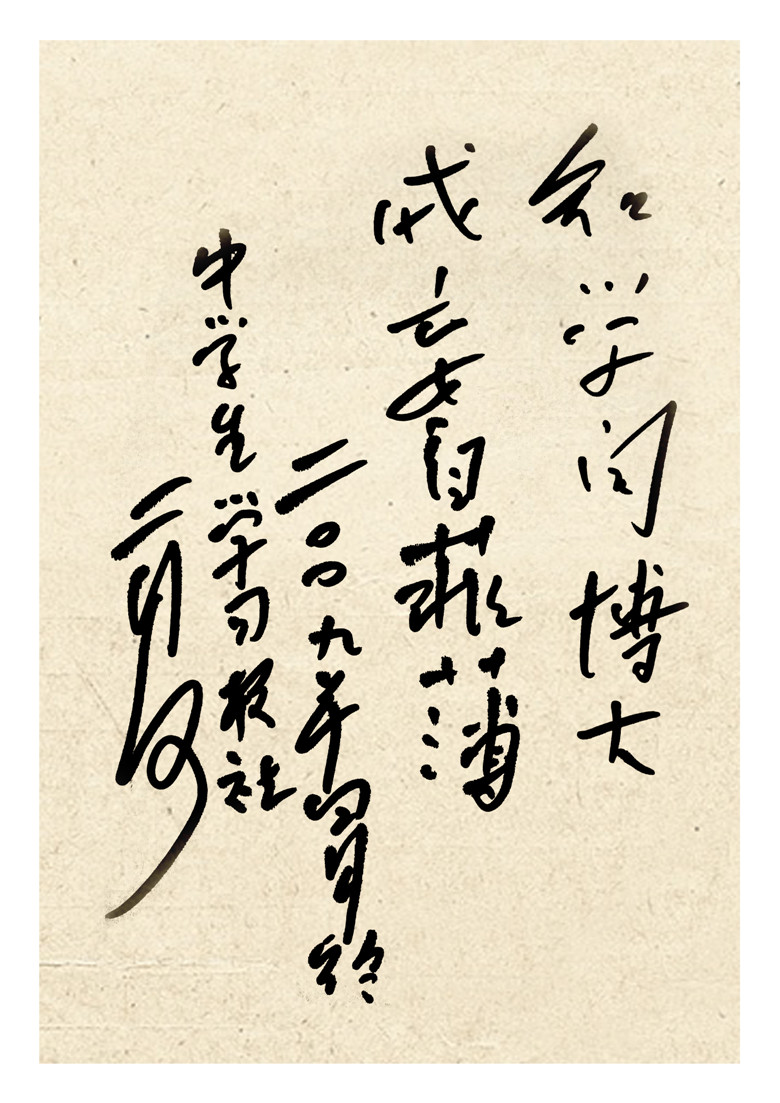 知学问博大
戒妄自菲薄
二〇〇九年四月於
中学生学习报社
二月河